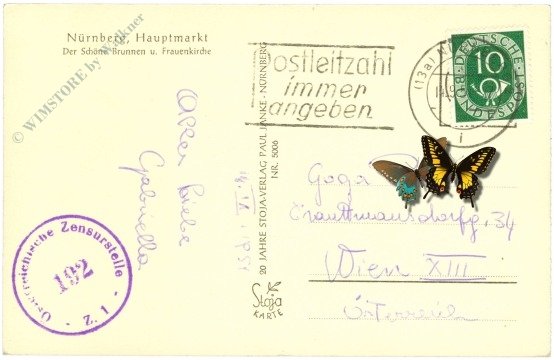 Nürnberg, Hauptmarkt
Der Schöne Brunnen u. Frauenkirche
© WIMSTORE by Wallner
Alles Liebe
Gabriella
Österreichische Zensurstelle
192
Z. 1
20 JAHRE STOJA-VERLAG PAUL JANKE · NÜRNBERG
NR. 5006
Stoja
KARTE
Postleitzahl
immer
angeben
(13a)
DEUTSCHE
BUNDESPOST
10
Goga
Trauttmansdorffg. 34
Wien XIII
Österreich